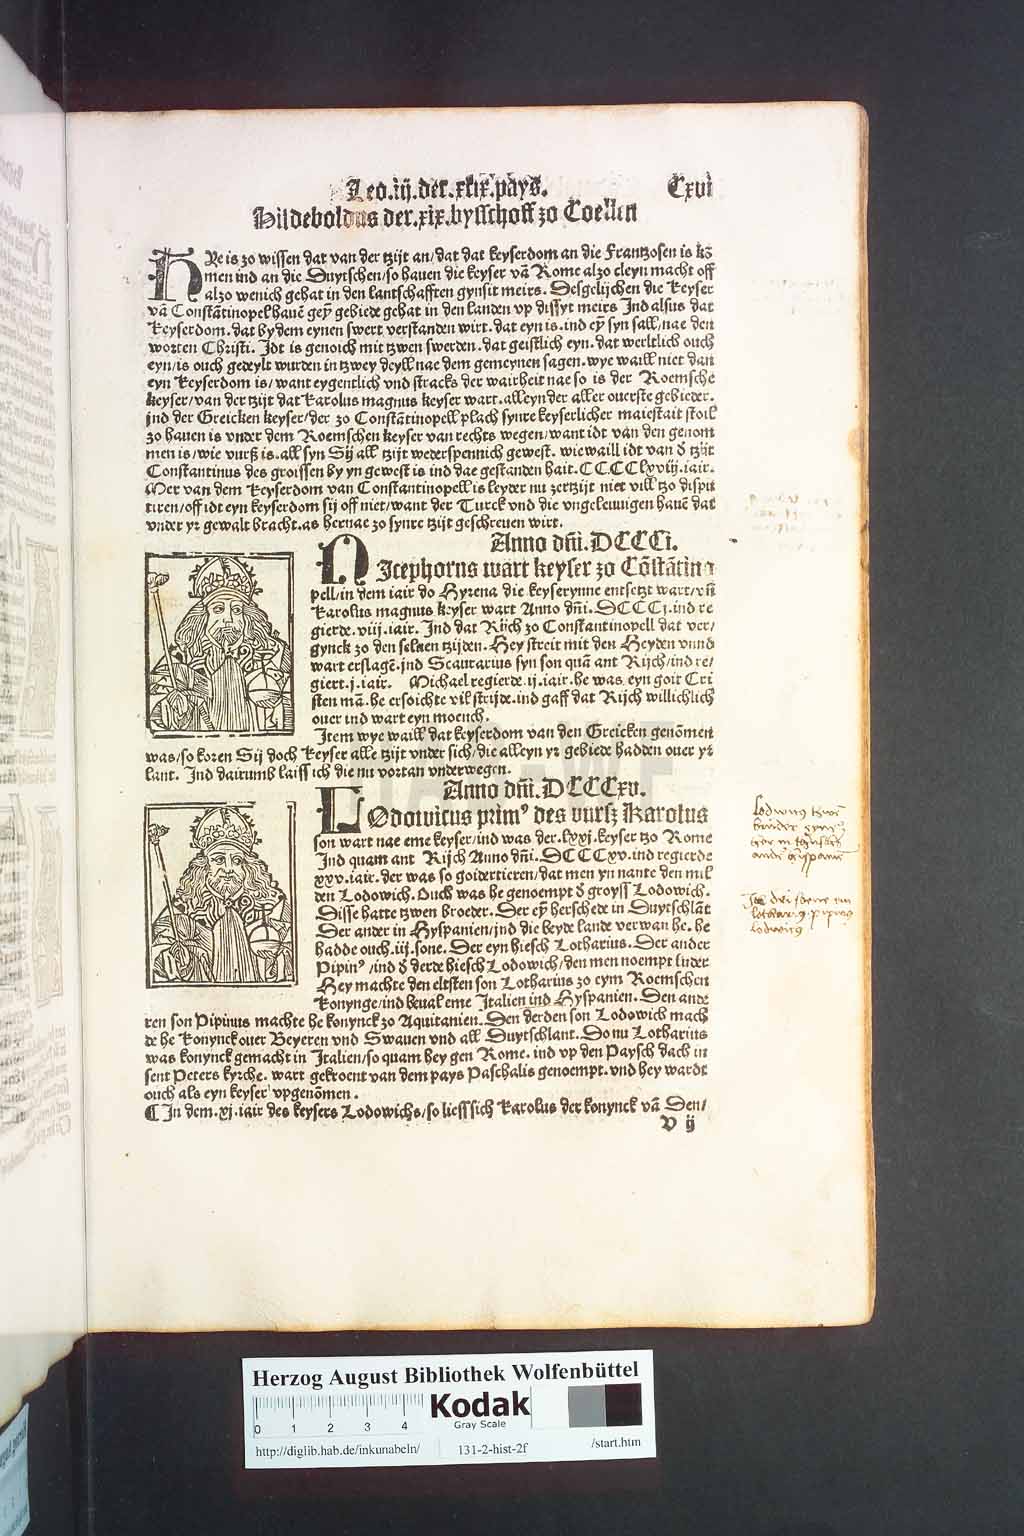 Leo.iij.der.xcix.pays. Cxvi
Hildeboldus der.xix.bysschoff zo Coellen
HIe is zo wissen dat van der tzijt an/dat dat keyserdom an die Frantzosen is kō
men ind an die Duytschen/so hauen die keyser vā Rome alzo cleyn macht off
alzo wenich gehat in den lantschafften gynsit meirs. Desgelijchen die Keyser
vā Constātinopel hauē geyn gebiede gehat in den landen vp dissyt meirs Ind alsus dat
Keyserdom.dat by dem eynen swert verstanden wirt.dat eyn is.ind eyn syn sall/nae den
worten Christi. Idt is genoich mit tzwen swerden.dat geistlich eyn.dat werltlich ouch
eyn/is ouch gedeylt wurden in tzwey deyll nae dem gemeynen sagen.wye waill niet dan
eyn Keyserdom is/want eygentlich vnd stracks der wairheit nae so is der Roemsche
keyser/van der tzijt dat Karolus magnus keyser wart.alleyn der aller ouerste gebieder.
jnd der Greicken keyser/der zo Constātinopell plach synre keyserlicher maiestait stoil
zo hauen is vnder dem Roemschen keyser van rechts wegen/want idt van den genom
men is/wie vurß is.all syn Sij all tzijt wederspennich gewest. wie waill idt van d tzijt
Constantinus des groissen by yn gewest is ind dae gestanden hait.CCCClxviij.iair.
Mer van dem Keyserdom van Constantinopell is leyder nu zertzijt niet vill tzo dispu
tiren/off idt eyn keyserdom sij off niet/want der Turck vnd die vngeleuuigen hauē dat
vnder yr gewalt bracht.as hernae zo synre tzijt geschreuen wirt.
Anno dñi.DCCCi.
NIcephorus wart keyser zo Cōstātino
pell/in dem iair do Hyrena die keyserynne entsetzt wart/vñ
Karolus magnus keyser wart Anno dñi.DCCCj.ind re
gierde.viij.iair. Ind dat Rijch zo Constantinopell dat ver/
gynck zo den seluen tzijden.Hey streit mit den Heyden vnnd
wart erslagē.jnd Scaurarius syn son quā ant Rijch/ind re/
giert.j.iair. Michael regierde.ij.iair.he was eyn goit Cri
sten mā.he ersoichte vil strijde.ind gaff dat Rijch willichlich
ouer ind wart eyn moench.
Item wye waill dat keyserdom van den Greicken genōmen
was/so koren Sij doch Keyser alle tzijt vnder sich/die alleyn yr gebiede hadden ouer yr
lant. Ind dairumb laiss ich die nu vortan vnderwegen.
Anno dñi.DCCCxv.
LOdowicus prim⁹ des vurß Karolus
son wart nae eme keyser/ind was der.lxxj.keyser tzo Rome
Ind quam ant Rijch Anno dñi.DCCCxv.ind regierde
xxv.iair.der was so goidertieren/dat men yn nante den mil
den Lodowich.Ouch was he genoempt d groyss Lodowich.
Disse hatte tzwen broeder.Der eyn herschede in Duytschlāt
Der ander in Hyspanien/jnd die beyde lande verwan he.he
hadde ouch.iij.sone.Der eyn hiesch Lotharius.Der ander
Pipin⁹/ind d derde hiesch Lodowich/den men noempt luder
Hey machte den eltsten son Lotharius zo eym Roemschen
Konynge/ind beual eme Italien ind Hyspanien.Den ande
ren son Pipinus machte he konynck zo Aquitanien.Den derden son Lodowich mach
de he Konynck ouer Beyeren vnd Swauen vnd all Duytschlant.Do nu Lotharius
was konynck gemacht in Italien/so quam hey gen Rome.ind vp den Paysch dach in
sent Peters kyrche.wart gekroent van dem pays Paschalis genoempt.vnd hey wardt
ouch als eyn keyser vpgenōmen.
¶ In dem.xj.iair des keysers Lodowichs/so liess sich Karolus der konynck vā Den/
V ij
Lodwicus
lotharius pipinus
lodwicus
Herzog August Bibliothek Wolfenbüttel
0 1 2 3 4
Kodak
Gray Scale
http://diglib.hab.de/inkunabeln/ 131-2-hist-2f /start.htm